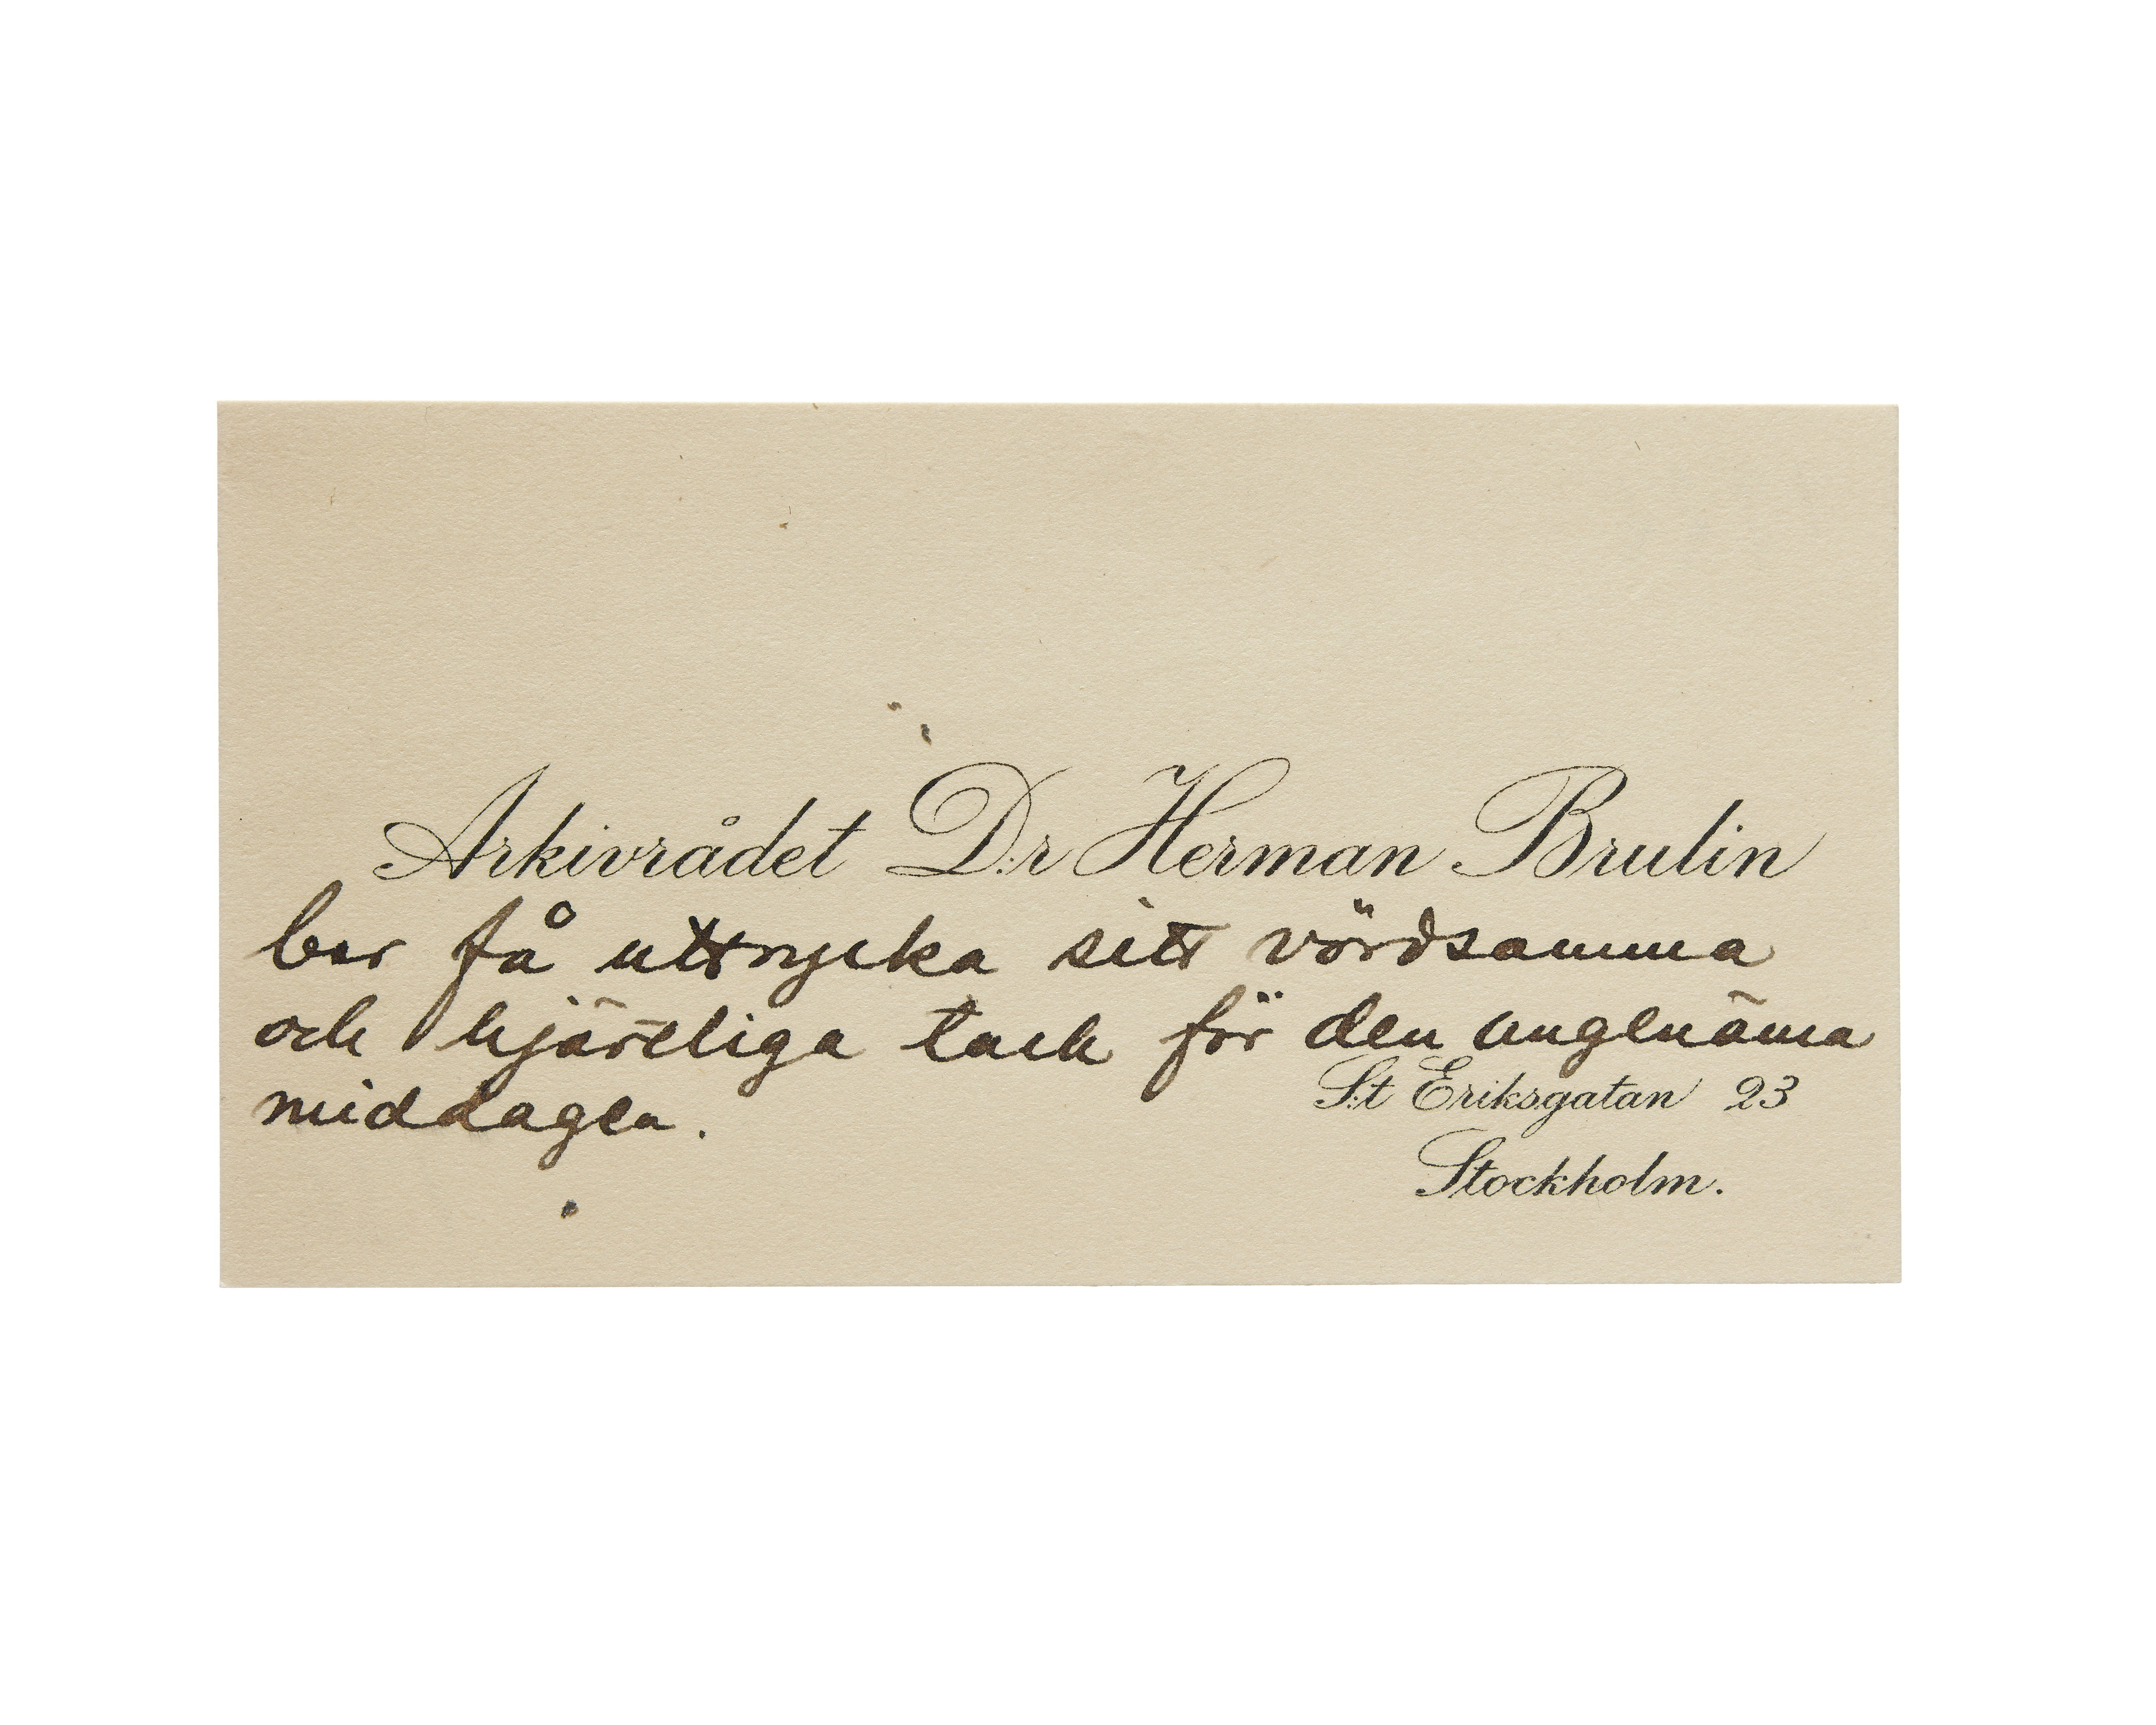 Arkivrådet D:r Herman Brulin
ber få uttrycka sitt vördsamma
och hjärtliga tack för den angenäma
middagen.
S:t Eriksgatan 23
Stockholm.